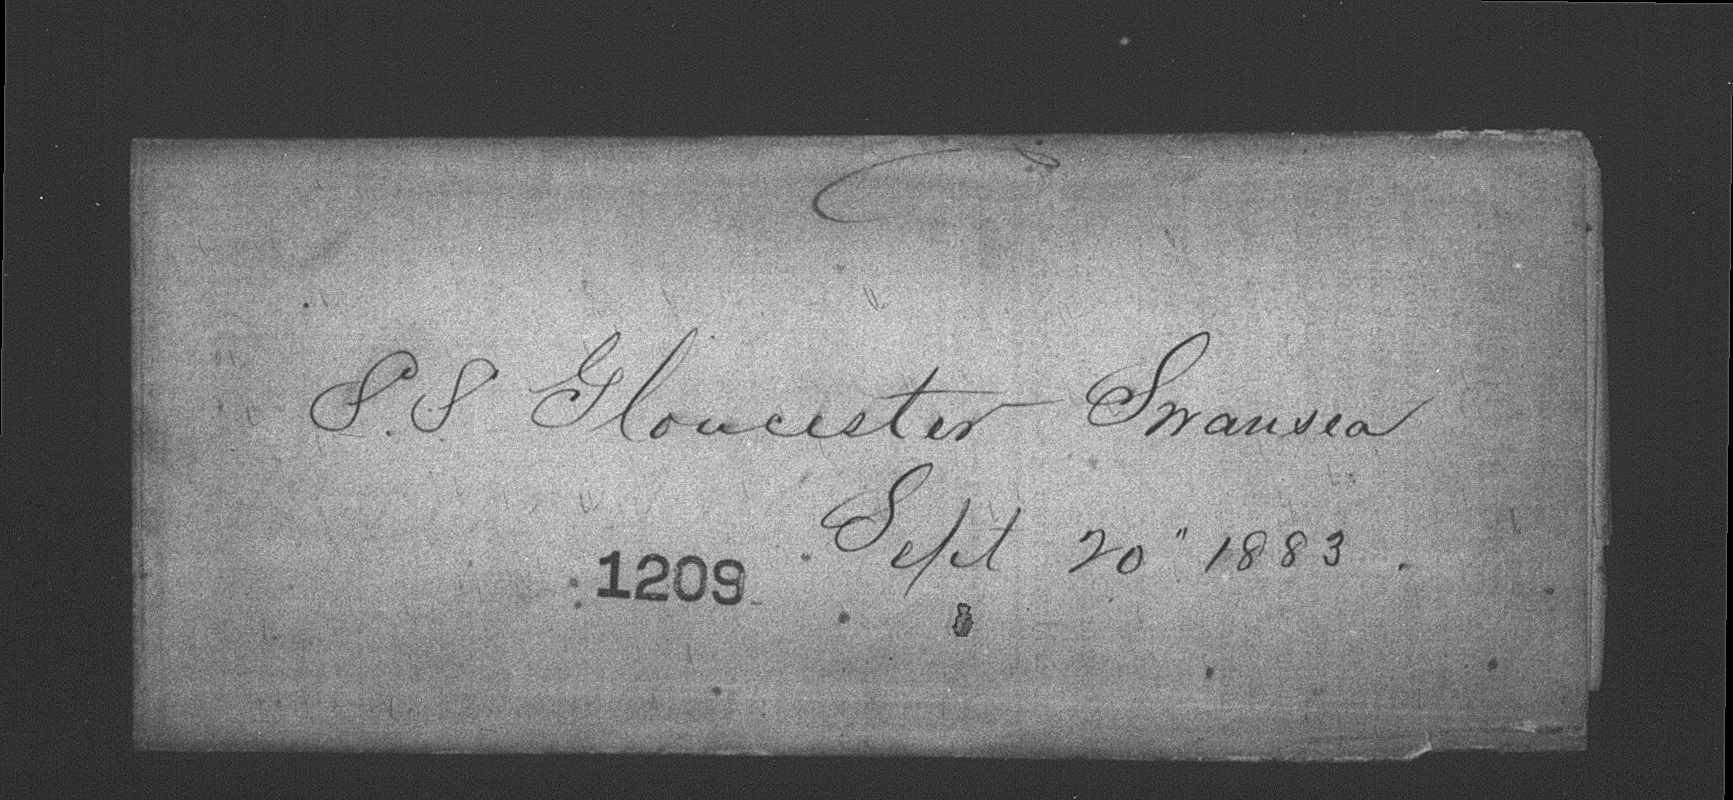 S.S Gloucester Swansea
Sept 20" 1883.
1209